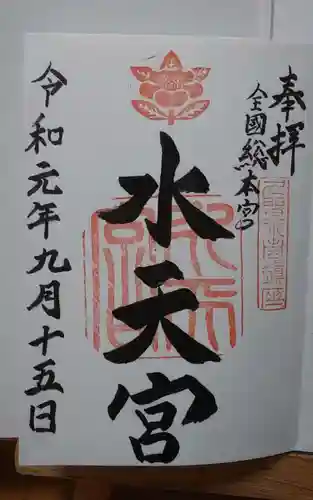 奉拝
全国総本宮
水天宮
令和元年九月十五日